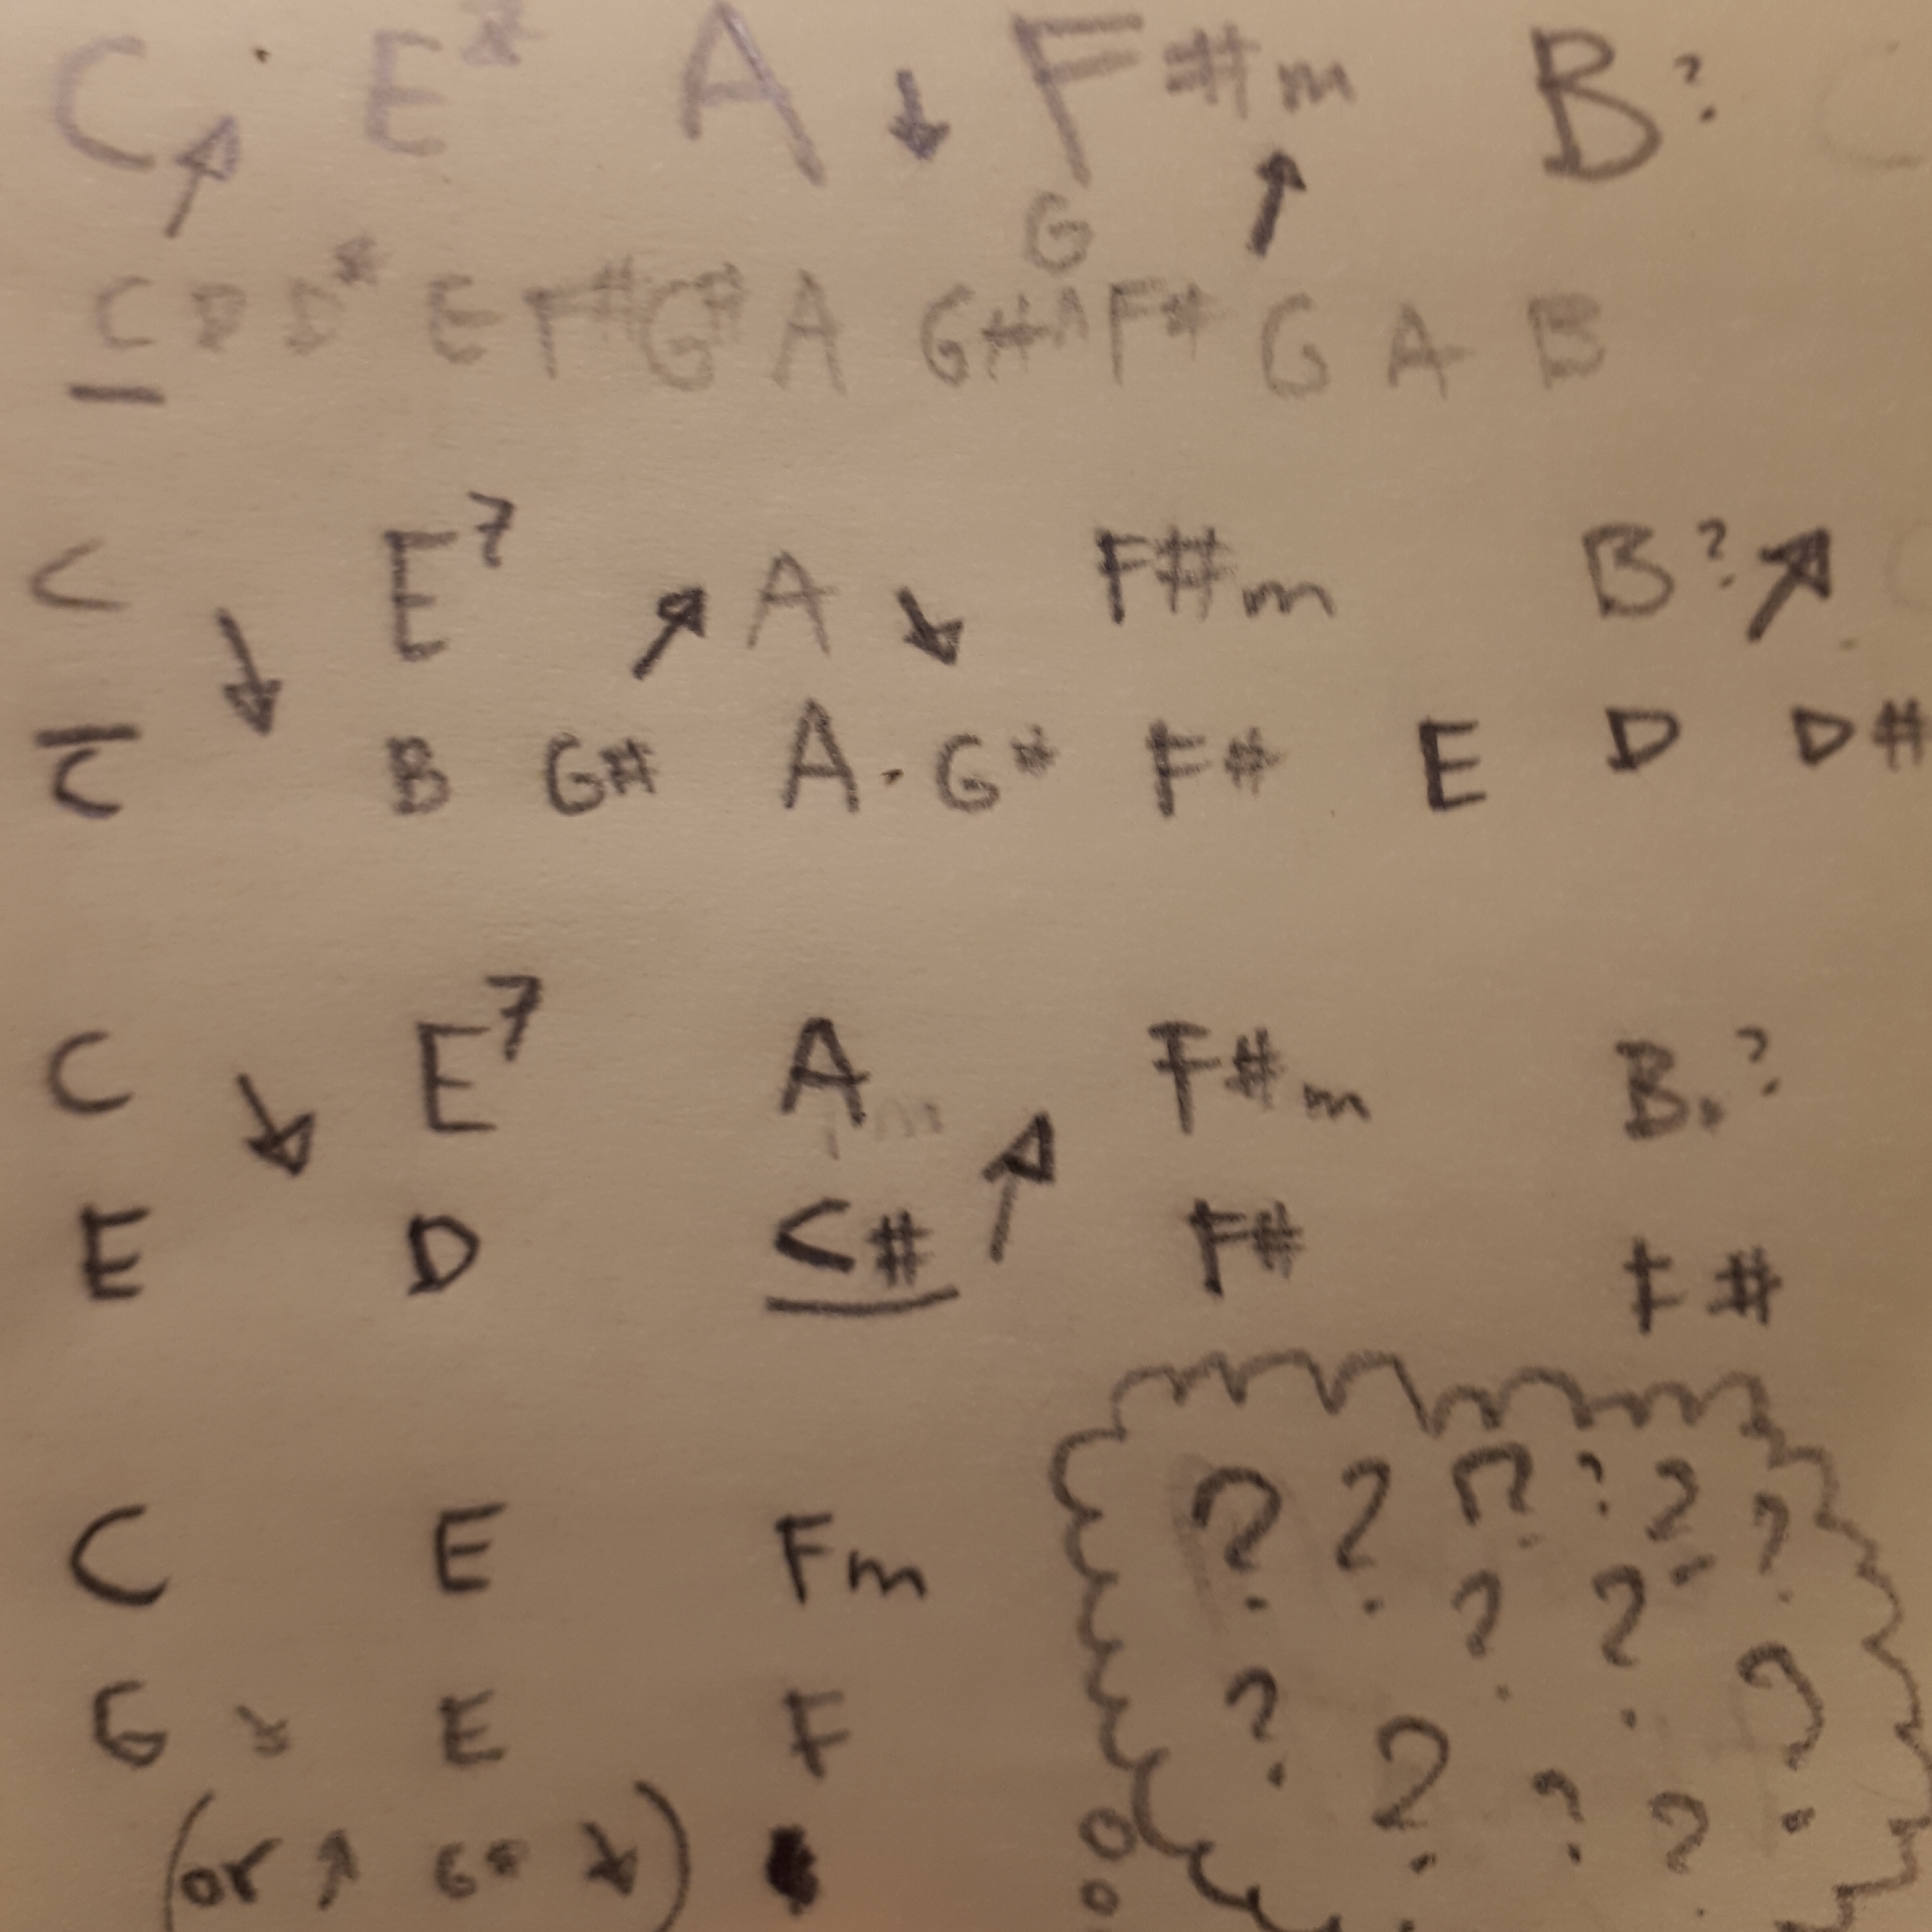 C E7 A ↓ F#m B?
G
C D D# E F# G# A G# A F# G A B
C E7 ↗ A ↘ F#m B? ↗
C ↓ B G# A · G# F# E D D#
C ↘ E7 A F#m B?
E D C# ↑ F# F#
C E Fm ? ? ? ? ? ?
? ?
G ↘ E F ? ?
? ? ?
(or ↗ G# ↘)